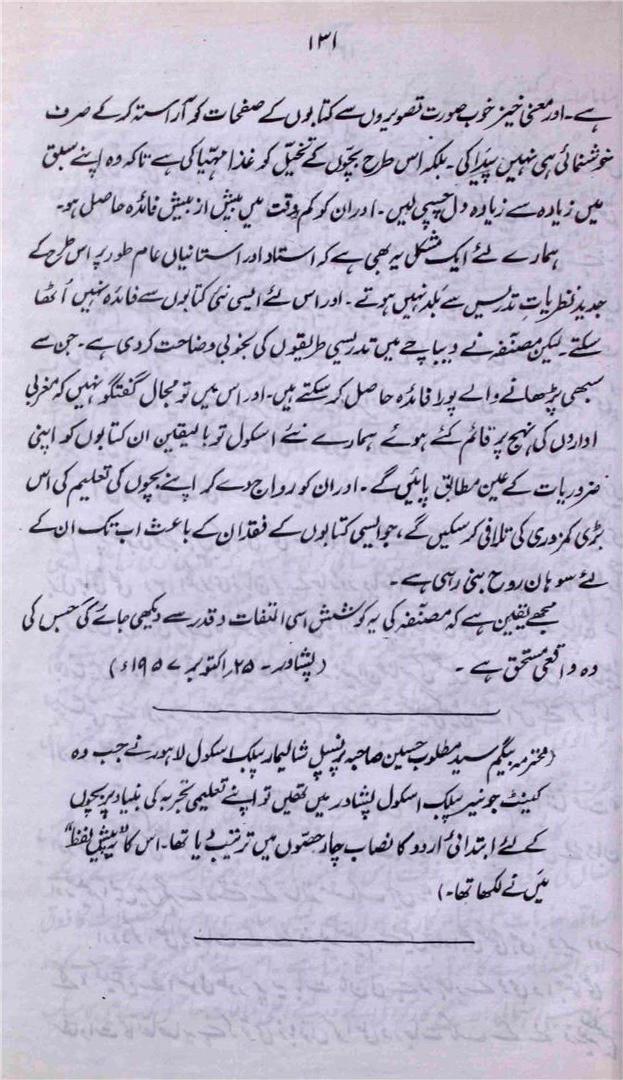 ۱۳۱
ہے۔ اور معنی خیز خوب صورت تصویروں سے کتابوں کے صفحات کو آراستہ کر کے صرف
خوشنمائی ہی نہیں پیدا کی۔ بلکہ اس طرح بچوں کے تخیّل کو غذا مہیّا کی ہے تاکہ وہ اپنے سبق
میں زیادہ سے زیادہ دل چسپی لیں۔ اور ان کو کم وقت میں بیش از بیش فائدہ حاصل ہو۔
ہمارے لئے ایک مشکل یہ بھی ہے کہ استاد اور استانیاں عام طور پر اس طرح کے
جدید نظریات تدریس سے بلد نہیں ہوتے۔ اور اس لئے ایسی نئی کتابوں سے فائدہ نہیں اُٹھا
سکتے۔ لیکن مصنّفہ نے دیباچے میں تدریسی طریقوں کی بخوبی وضاحت کر دی ہے۔ جن سے
سبھی پڑھانے والے پورا فائدہ حاصل کر سکتے ہیں۔ اور اس میں تو مجال گفتگو نہیں کہ مغربی
اداروں کی نہج پر قائم کئے ہوئے ہمارے نئے اسکول تو بالیقین ان کتابوں کو اپنی
ضروریات کے عین مطابق پائیں گے۔ اور ان کو رواج دے کر اپنے بچوں کی تعلیم کی اس
بڑی کمزوری کی تلافی کر سکیں گے، جو ایسی کتابوں کے فقدان کے باعث اب تک ان کے
لئے سوہان روح بنی رہی ہے۔
مجھے یقین ہے کہ مصنّفہ کی یہ کوشش اسی التفات و قدر سے دیکھی جائے گی جس کی
وہ واقعی مستحق ہے۔ (پشاور۔ ۲۵؍اکتوبر ۱۹۵۷ء)
(محترمہ بیگم سید مطلوب حسین صاحبہ پرنسپل شالیمار پبلک اسکول لاہور نے جب وہ
کینٹ جونیر پبلک اسکول پشاور میں تھیں تو اپنے تعلیمی تجربہ کی بنیاد پر بچوں
کے لئے ابتدائی اردو کا نصاب چار حصّوں میں ترتیب دیا تھا۔ اس کا "پیش لفظ"
میں نے لکھا تھا۔)